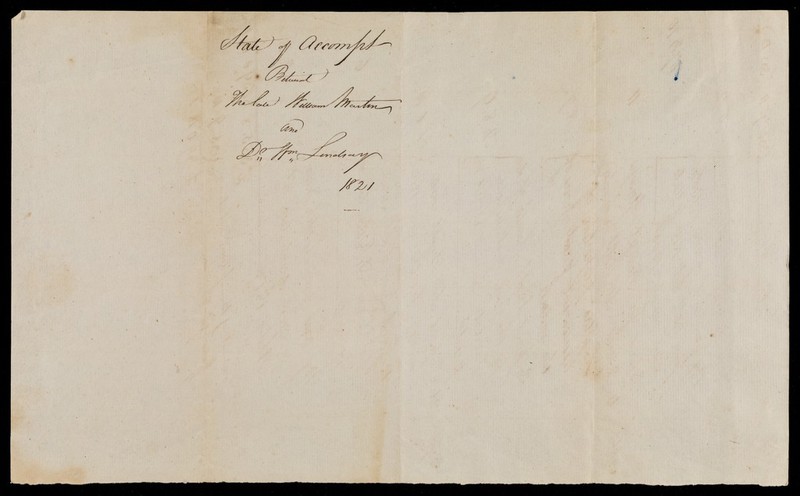 State of Accompt
Betwixt
The late William Martin
and
Dr Wm Lindsay
1821